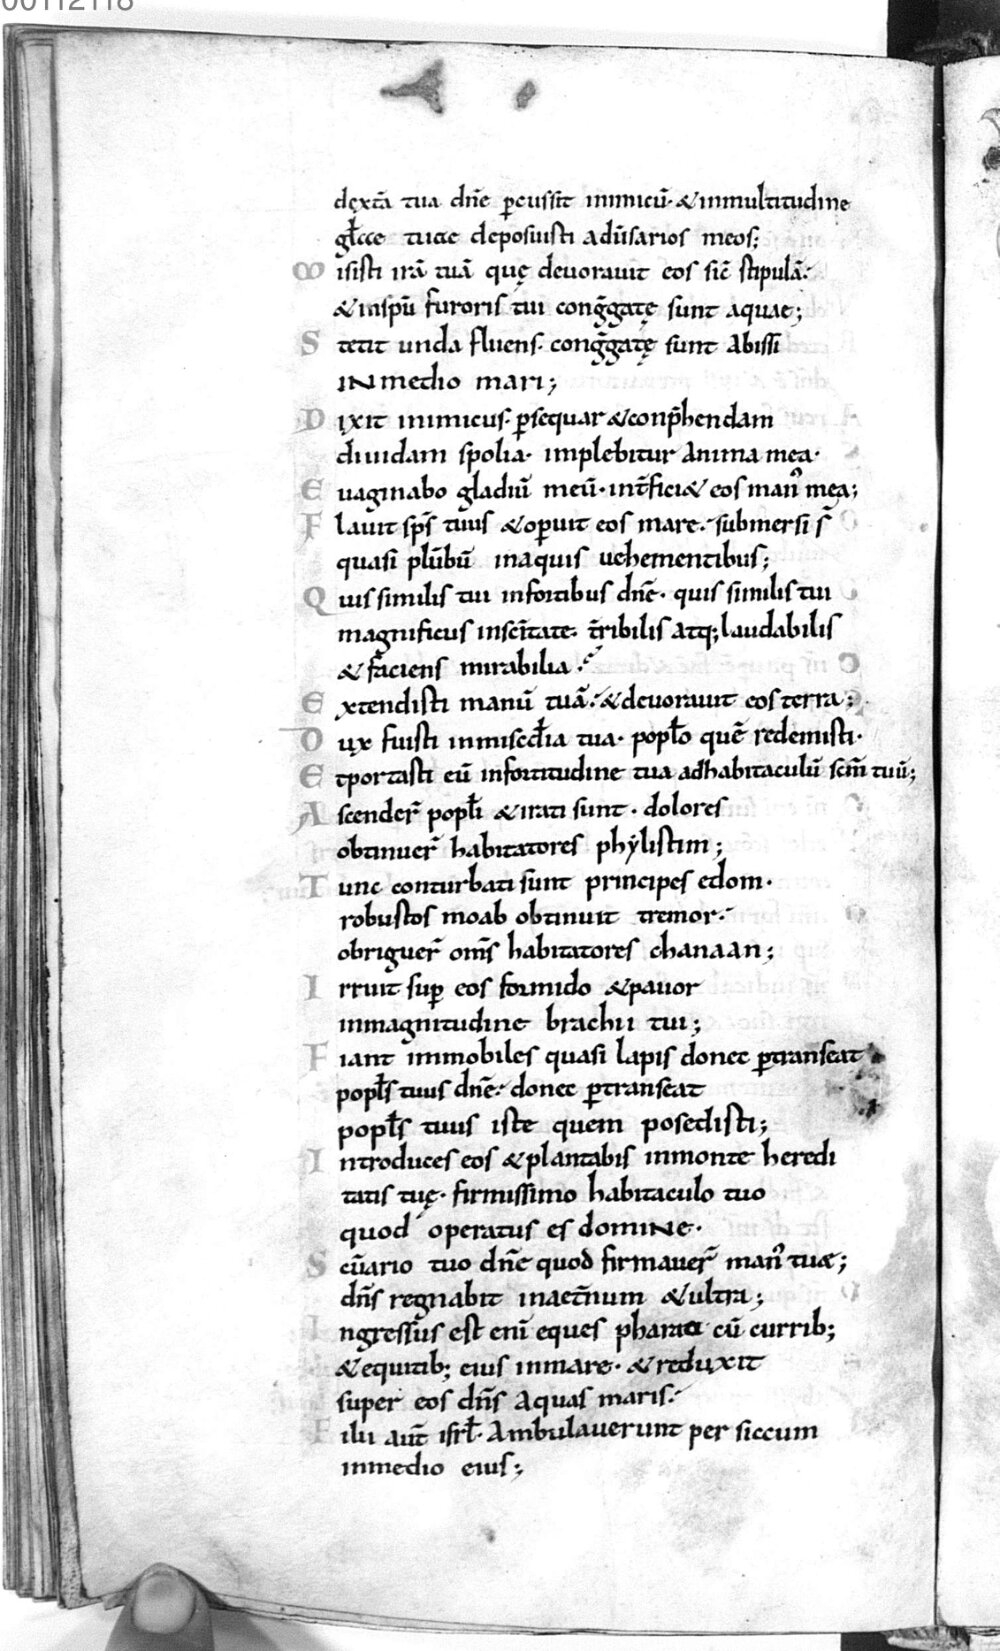 00112118
dęxt̄a tua dn̄e p̄cussit inimicū· &inmultitudine
gl̄ae tuae deposuisti adū̄sarios meos;
Misisti irā tuā quę deuorauit eos sic̄ stipulā·
&inspū furoris tui congḡgatę sunt aquae;
Stetit unda fluens· congḡgatę sunt abissi
iNmedio mari;
Dixit inimicus· p̄sequar &conp̄hendam
diuidam spolia· implebitur anima mea·
Euaginabo gladiū meū· int̄fici& eos man᾽ mea;
Flauit sp̄s tuus &op̄uit eos mare· submersi s̄
quasi plūbū inaquis uehementibus;
Quis similis tui infortibus dn̄e· quis similis tui
magnificus insc̄itate· t̄ribilis atq; laudabilis
& faciens mirabilia·
Extendisti manū tuā· &deuorauit eos terra;
Dux fuisti inmisedīa tua· popl̄o quē redemisti·
Etportasti eū infortitudine tua adhabitaculū scm̄ tuū;
Ascender̄ popl̄i &irati sunt· dolores
obtinuer̄ habitatores phylistim;
Tunc conturbati sunt principes edom·
robustos moab obtinuit tremor·
obriguer̄ om̄s habitatores chanaan;
Irruit sup̄ eos formido &pauor
inmagnitudine brachii tui;
Fiant immobiles quasi lapis donec p̄transeat
popl̄s tuus dn̄e· donec p̄transeat
popl̄s tuus iste quem posedisti;
Introduces eos &plantabis inmonte heredi
tatis tuę· firmissimo habitaculo tuo
quod operatus es domiNe·
Scūario tuo dn̄e quod firmauer̄ man᾽ tuae;
dn̄s regnabit inaet̄num &ultra;
Ingressus est enī eques pharao cū currib;
&equitib; eius inmare· &reduxit
super eos dn̄s aquas maris·
Filii aut̄ isrl̄· Ambulauerunt per siccum
inmedio eius;